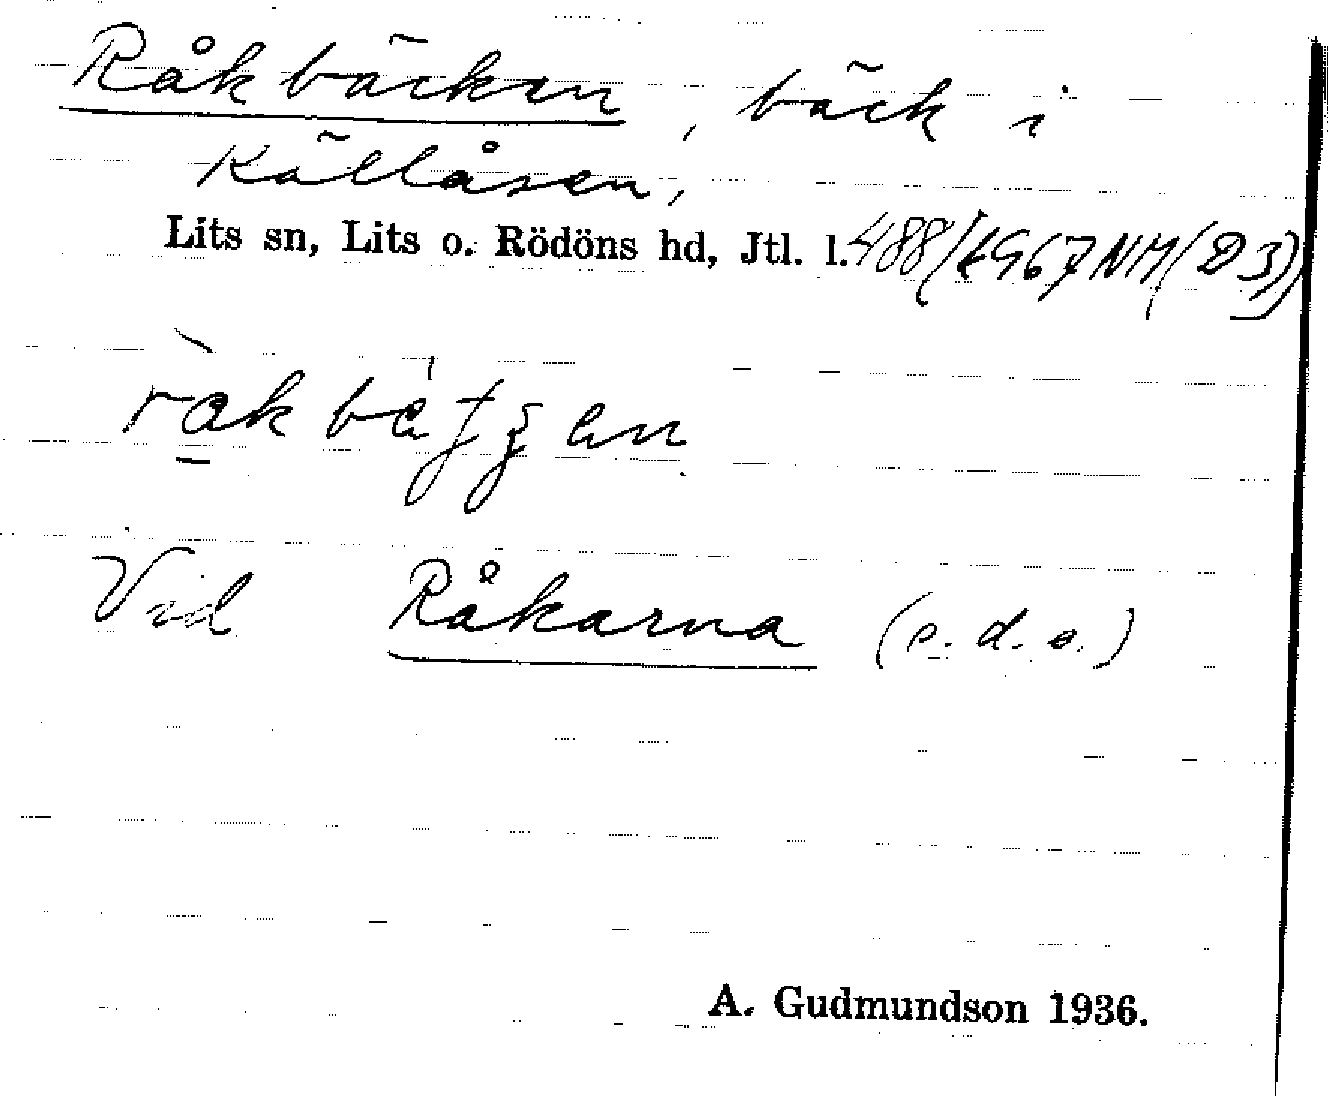 Råkbäcken, bäck i
Källåsen,
Lits sn, Lits o. Rödöns hd, Jtl. l. 488/1967 NM (D3)
Vid Råkarna (s.d.o.)
A. Gudmundson 1936.